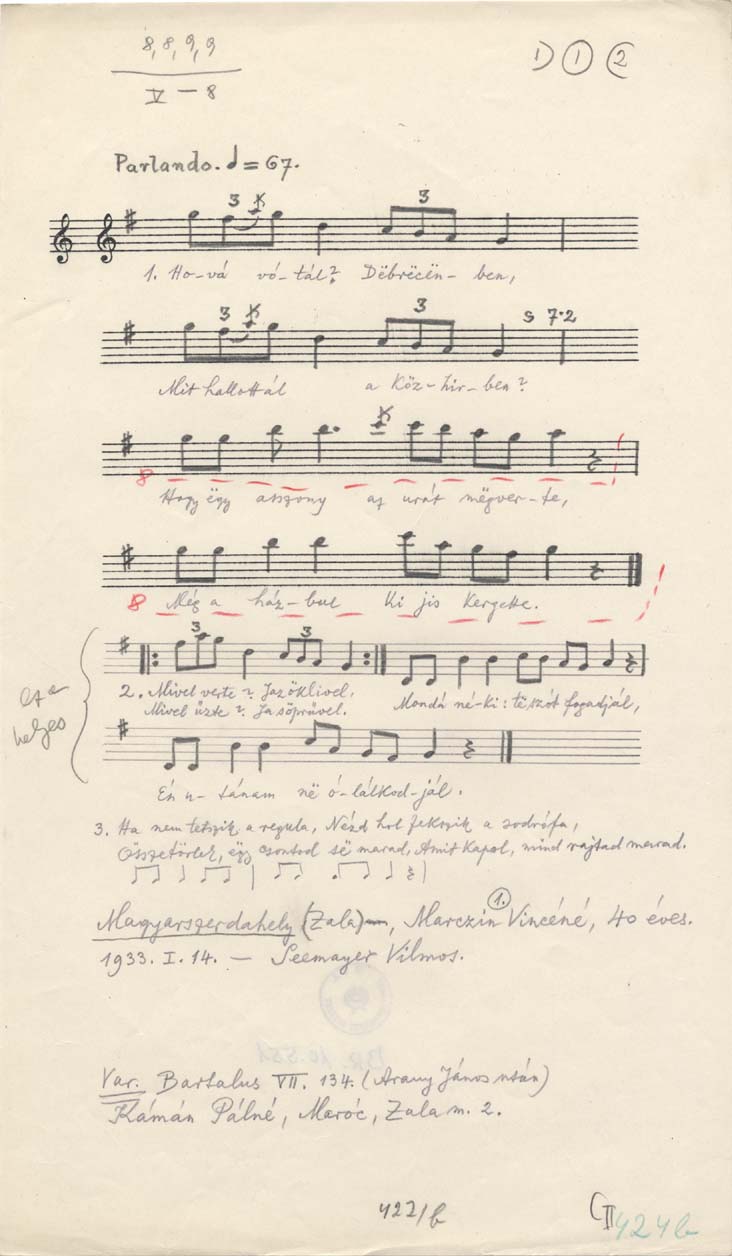 8, 8, 9, 9
V – 8
D 1 2
Parlando. = 67.
3
3
1. Ho-vá vó-tál? Dëbrëcën-ben,
3
3
S 7·2
Mit hallottál a Köz-hir-ben?
8
Hogy ëgy asszony az urát mëgver-te,
8
Még a ház-bul Ki jis Kergette.
3
3
2. Mivel verte? Jaz öklivel,
Mivel űzte? Ja söprüvel.
Mondá né-ki: të szót fogadjál,
ez a
helyes
Én u-tánam në ó-lálkod-jál.
3. Ha nem tetszik a regula, Nézd hol fekszik a sodrófa,
Összetörlek, ëgy csontod së marad, Amit kapol, mind rajtad marad.
1.
Magyarszerdahely (Zala), Marczin Vincéné, 40 éves.
1933. I. 14. — Seemayer Vilmos.
BR. 10.551
Var. Bartalus VII. 134. (Arany János után)
Kámán Pálné, Maróc, Zala m. 2.
422/b
C II 424b